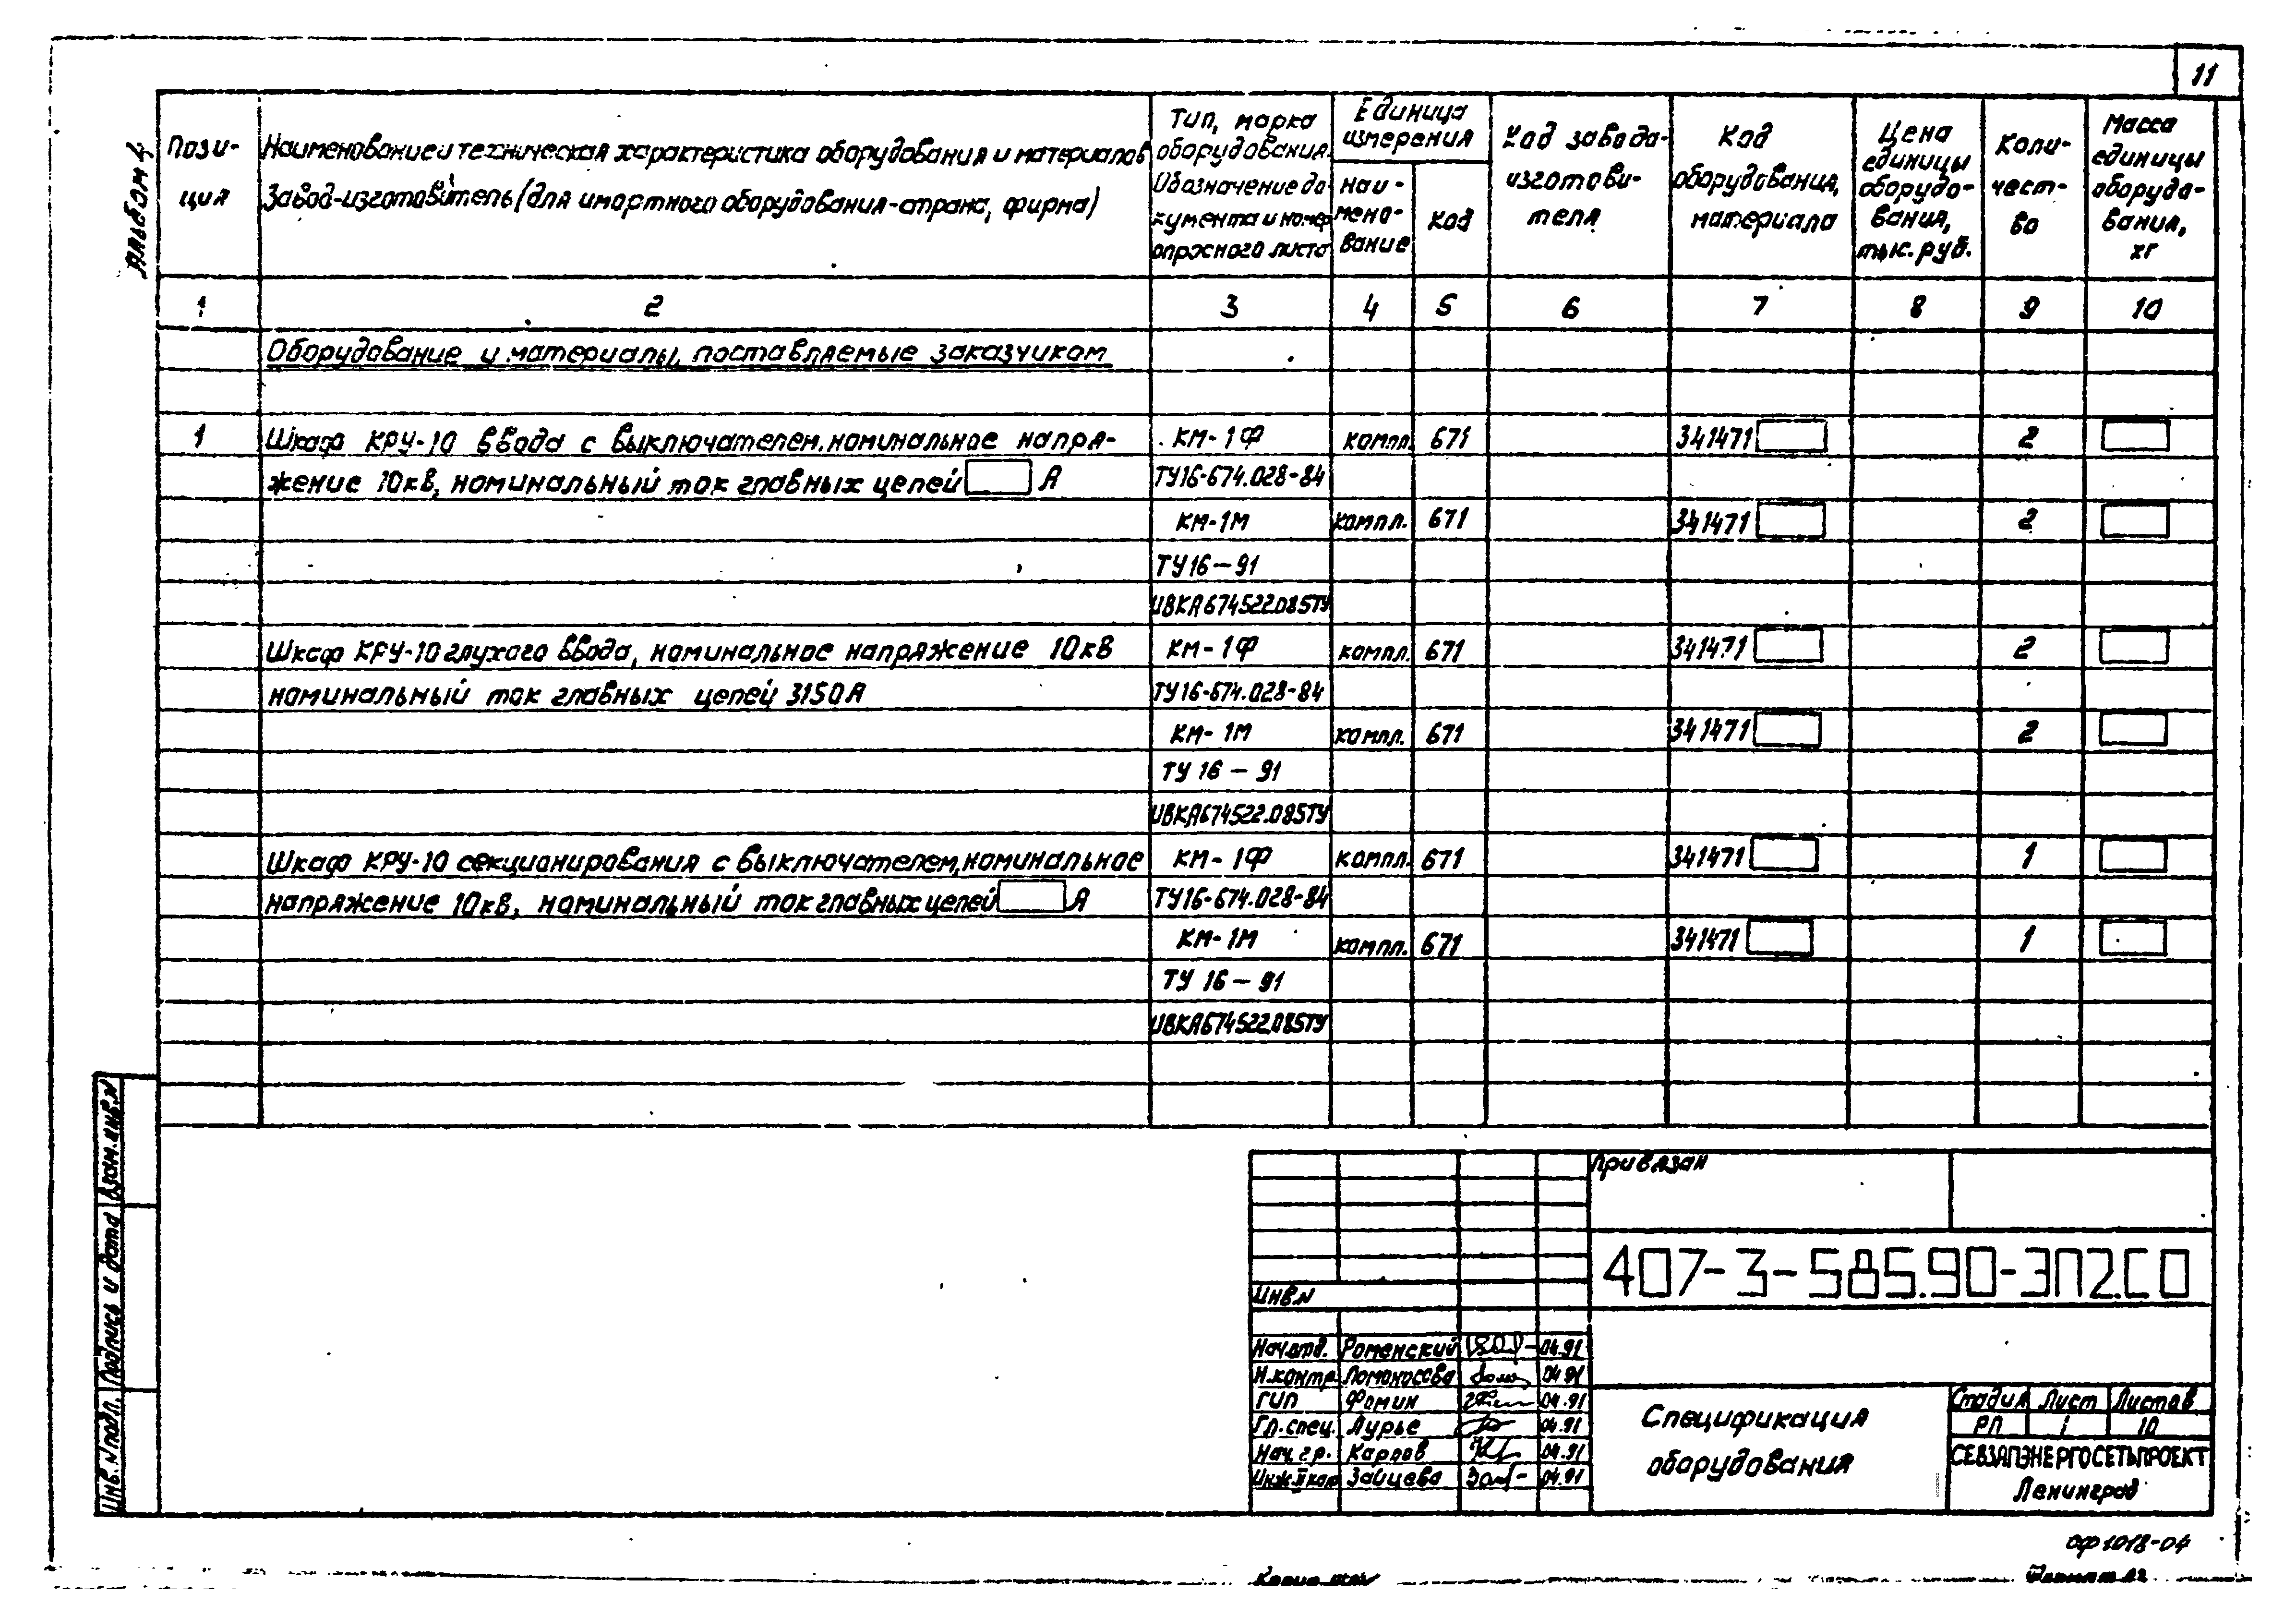 11
Альбом 4
Пози-
ция
Наименование и техническая характеристика оборудования и материалов
Завод-изготовитель (для импортного оборудования-страна, фирма)
Тип, марка
оборудования.
Обозначение до
кумента и номер
опросного листа
Единица
измерения
наи-
мено-
вание
код
Код завода-
изготови-
теля
Код
оборудования,
материала
Цена
единицы
оборудо-
вания,
тыс. руб.
Коли-
чест-
во
Масса
единицы
оборудо-
вания,
кг
1 2 3 4 5 6 7 8 9 10
Оборудование и материалы, поставляемые заказчиком
1 Шкаф КРУ-10 ввода с выключателем, номинальное напря- КМ-1Ф компл. 671 341471 2
жение 10кВ, номинальный ток главных цепей А ТУ16-674.028-84
КМ-1М компл. 671 341471 2
ТУ16-91
ИВКА674522.085ТУ
Шкаф КРУ-10 глухого ввода, номинальное напряжение 10кВ КМ-1Ф компл. 671 341471 2
номинальный ток главных цепей 3150А ТУ16-674.028-84
КМ-1М компл. 671 341471 2
ТУ 16-91
ИВКА674522.085ТУ
Шкаф КРУ-10 секционирования с выключателем, номинальное КМ-1Ф компл. 671 341471 1
напряжение 10кВ, номинальный ток главных цепей А ТУ16-674.028-84
КМ-1М компл. 671 341471 1
ТУ 16-91
ИВКА674522.085ТУ
Взам.инв.N
Подпись и дата
Инв.N подл.
Привязан
Инв.N
407-3-585.90-ЭП2.СО
Нач.отд. Роменский 04.91
Н.контр. Ломоносова 04.91
ГИП Фомин 04.91
Гл.спец. Лурье 04.91
Нач.гр. Карпов 04.91
Инж.II кат. Зайцева 04.91
Спецификация
оборудования
Стадия Лист Листов
РП 1 10
СЕВЗАПЭНЕРГОСЕТЬПРОЕКТ
Ленинград
ОФ1018-04
Формат А2